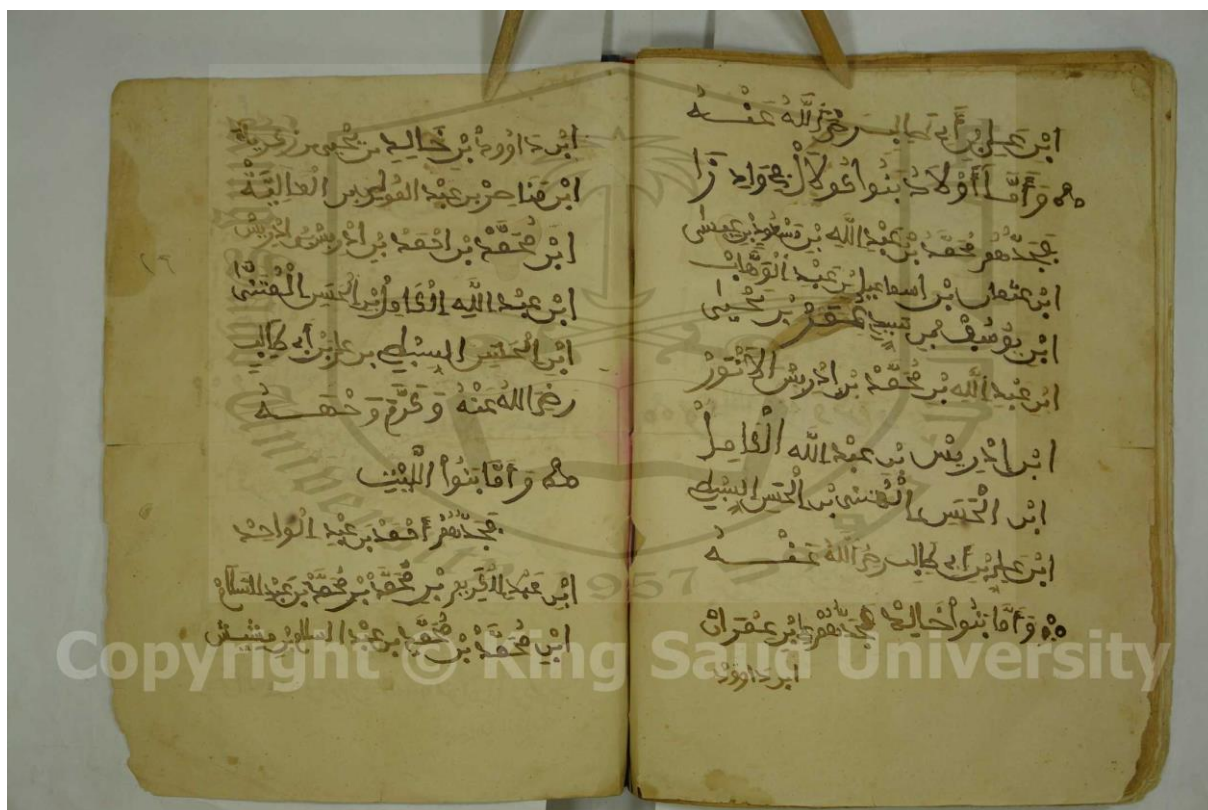 ابن علي بن أبي طالب رضي الله عنه
وأما أولاد بنوا
فجدهم محمد بن عبد الله بن مسعود بن عيسى
ابن عثمان بن اسماعيل بن عبد الوهاب
ابن يوسف بن بن يحيى
ابن عبد الله بن محمد بن إدريس الأنور
ابن ادريس بن عبد الله الكامل
ابن الحسن المثنى بن الحسن السبط
ابن علي بن أبي طالب رضي الله عنه
وأما بنوا خالد فجدهم بن عمران
ابن داوود
ابن داوود بن خالد بن يحيى بن زكرية
ابن بن عبد القوي بن العالية
ابن محمد بن احمد بن ادريس بن ادريس
ابن عبد الله الكامل بن الحسن المثنى
ابن الحسن السبط بن علي بن أبي طالب
رضي الله عنه وكرم وجهه
وأما بنوا الليث
فجدهم أحمد بن عبد الواحد
ابن عبد الكريم بن محمد بن محمد بن عبد السلام
ابن محمد بن محمد بن عبد السلام بن مشيش
٢٩
Copyright © King Saud University
1957